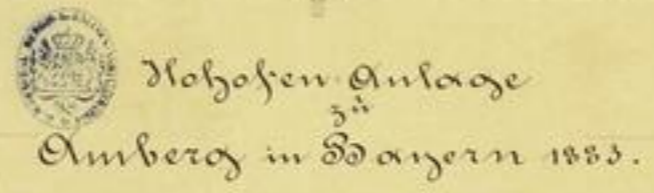 Hohofen-Anlage
zu
Amberg in Bayern 1883.